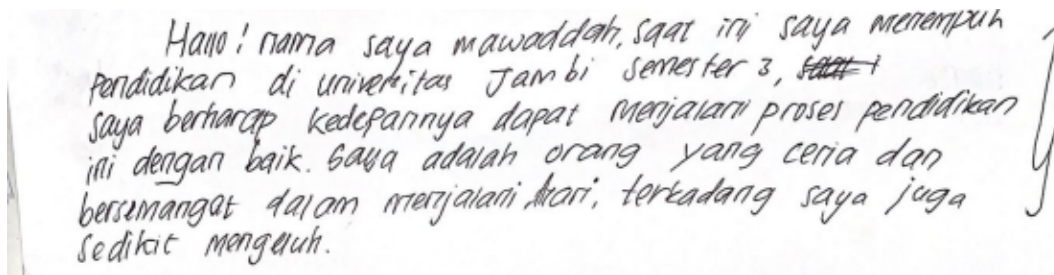 Hallo! nama saya mawaddah, saat ini saya menempuh
pendidikan di universitas Jambi semester 3,
saya berharap kedepannya dapat menjalani proses pendidikan
ini dengan baik. saya adalah orang yang ceria dan
bersemangat dalam menjalani hari, terkadang saya juga
sedikit mengeluh.